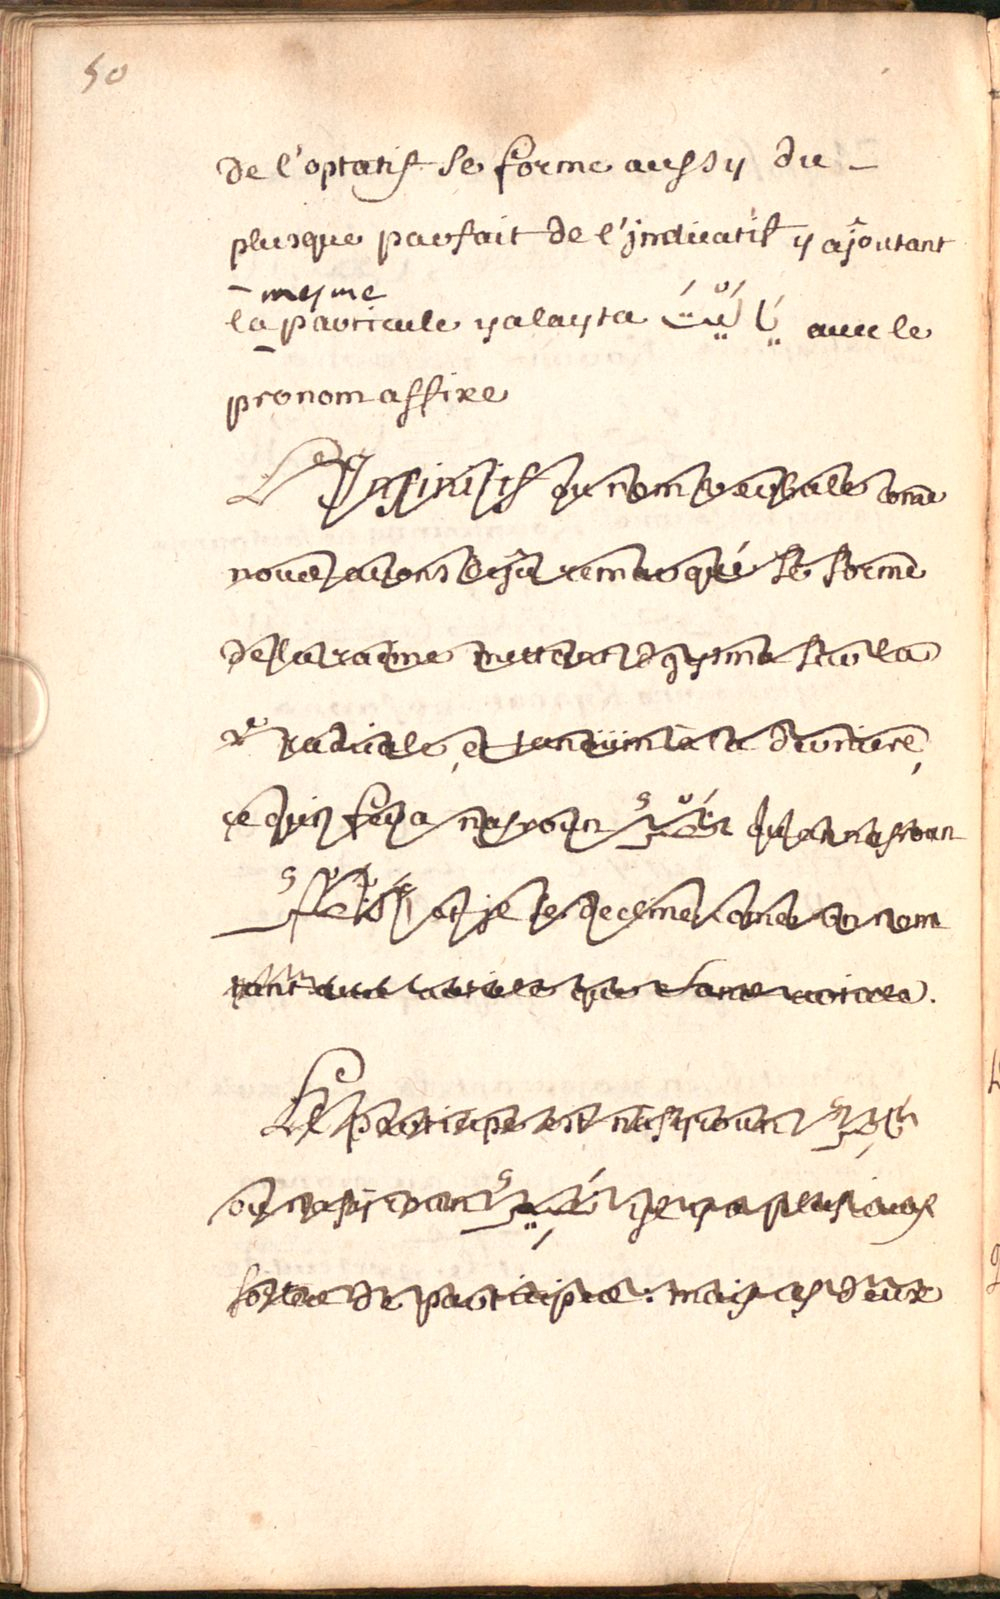 50
de l'optatif se forme aussy du –
plusque parfait de l'jndicatif y ajoutant
– mesme
la particule yalayta يَا لَيْتَ auec le
pronom affixe
L'Jnfinitif ou nom verbale come
nous auons deja remarqué se forme
de la racine mettant dgezma sur la
2e radicale, et tanouin a la derniere,
ce qui fera nasroun نَصْرٌ ou annasroun
et je se decline come un nom
tant auec article que sans article.
Le participe est
ou nasiroun il y a plusieurs
sortes de participes: mais ces deux